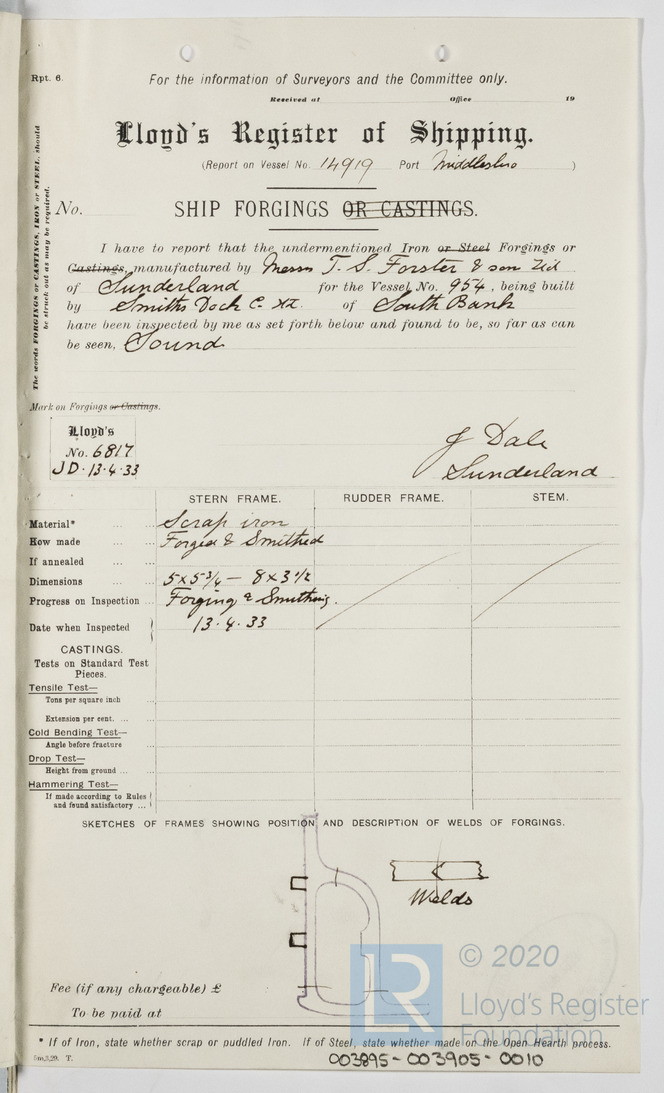 Rpt. 6.
For the information of Surveyors and the Committee only.
Received at Office 19
Lloyd's Register of Shipping.
(Report on Vessel No. 14919 Port Middlesbro )
No. SHIP FORGINGS OR CASTINGS.
The words FORGINGS or CASTINGS, IRON or STEEL, should
be struck out as may be required.
I have to report that the undermentioned Iron or Steel Forgings or
Castings, manufactured by Messrs T. S. Forster & son Ltd
of Sunderland for the Vessel No. 954, being built
by Smiths Dock Co. Ltd. of South Bank
have been inspected by me as set forth below and found to be, so far as can
be seen, Sound
Mark on Forgings or Castings.
Lloyd's
No. 6817
JD. 13.4.33
J Dale
Sunderland
STERN FRAME. RUDDER FRAME. STEM.
Material* ... ... Scrap iron
How made ... ... Forged & Smithed
If annealed ... ...
Dimensions ... ... 5x5 3/4 — 8x3 1/2
Progress on Inspection ... Forging & Smithing.
Date when Inspected 13.4.33
CASTINGS.
Tests on Standard Test
Pieces.
Tensile Test—
Tons per square inch ...
Extension per cent. ... ...
Cold Bending Test—
Angle before fracture ...
Drop Test—
Height from ground ... ...
Hammering Test—
If made according to Rules
and found satisfactory ...
SKETCHES OF FRAMES SHOWING POSITION AND DESCRIPTION OF WELDS OF FORGINGS.
Welds
Fee (if any chargeable) £
To be paid at
LR
© 2020
Lloyd's Register
Foundation
* If of Iron, state whether scrap or puddled Iron. If of Steel, state whether made on the Open Hearth process.
5m,3,29. T.
003895-003905-0010